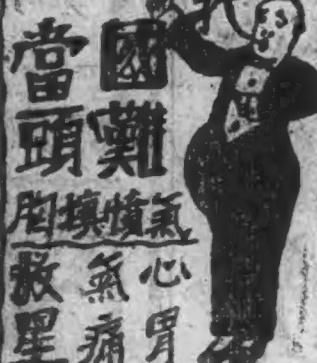 國難
當頭
氣憤填胸
心胃
氣痛
救星